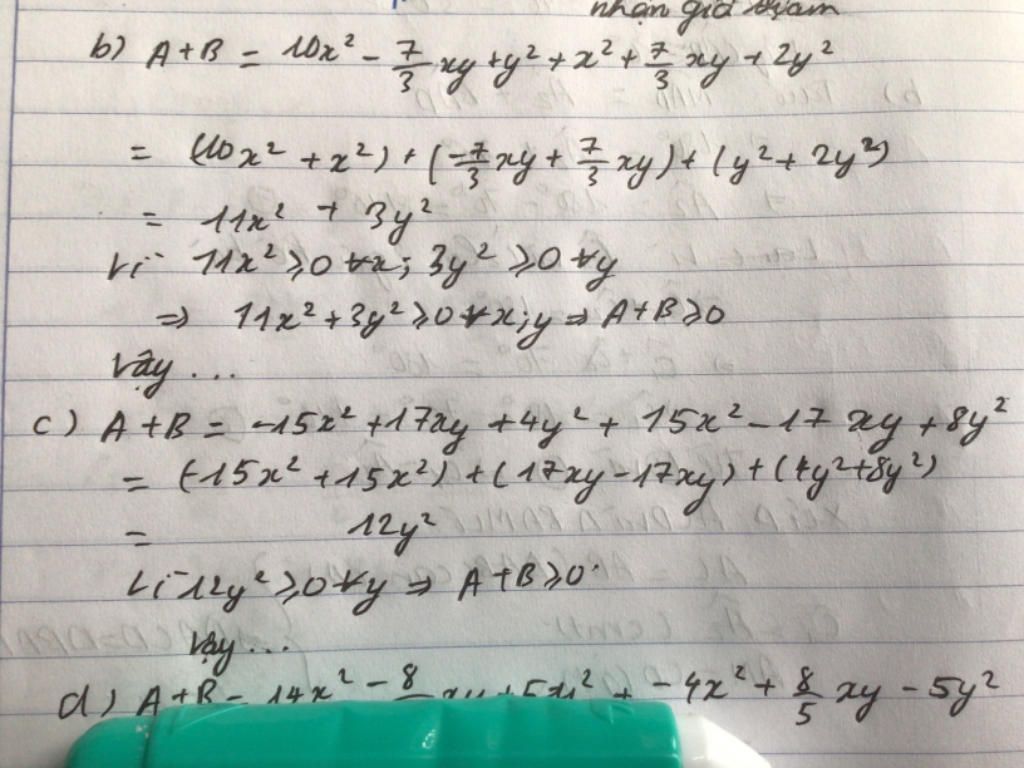 nhận giá trị âm
b) A+B = 10x² - 7/3 xy + y² + x² + 7/3 xy + 2y²
= (10x² + x²) + (-7/3 xy + 7/3 xy) + (y² + 2y²)
= 11x² + 3y²
Vì 11x² ≥ 0 ∀x; 3y² ≥ 0 ∀y
=> 11x² + 3y² ≥ 0 ∀x;y => A+B ≥ 0
Vậy ...
c) A+B = -15x² + 17xy + 4y² + 15x² - 17xy + 8y²
= (-15x² + 15x²) + (17xy - 17xy) + (4y² + 8y²)
= 12y²
Vì 12y² ≥ 0 ∀y => A+B ≥ 0
Vậy ...
d) A+B = 14x² - 8 xy + 5y² + -4x² + 8/5 xy - 5y²